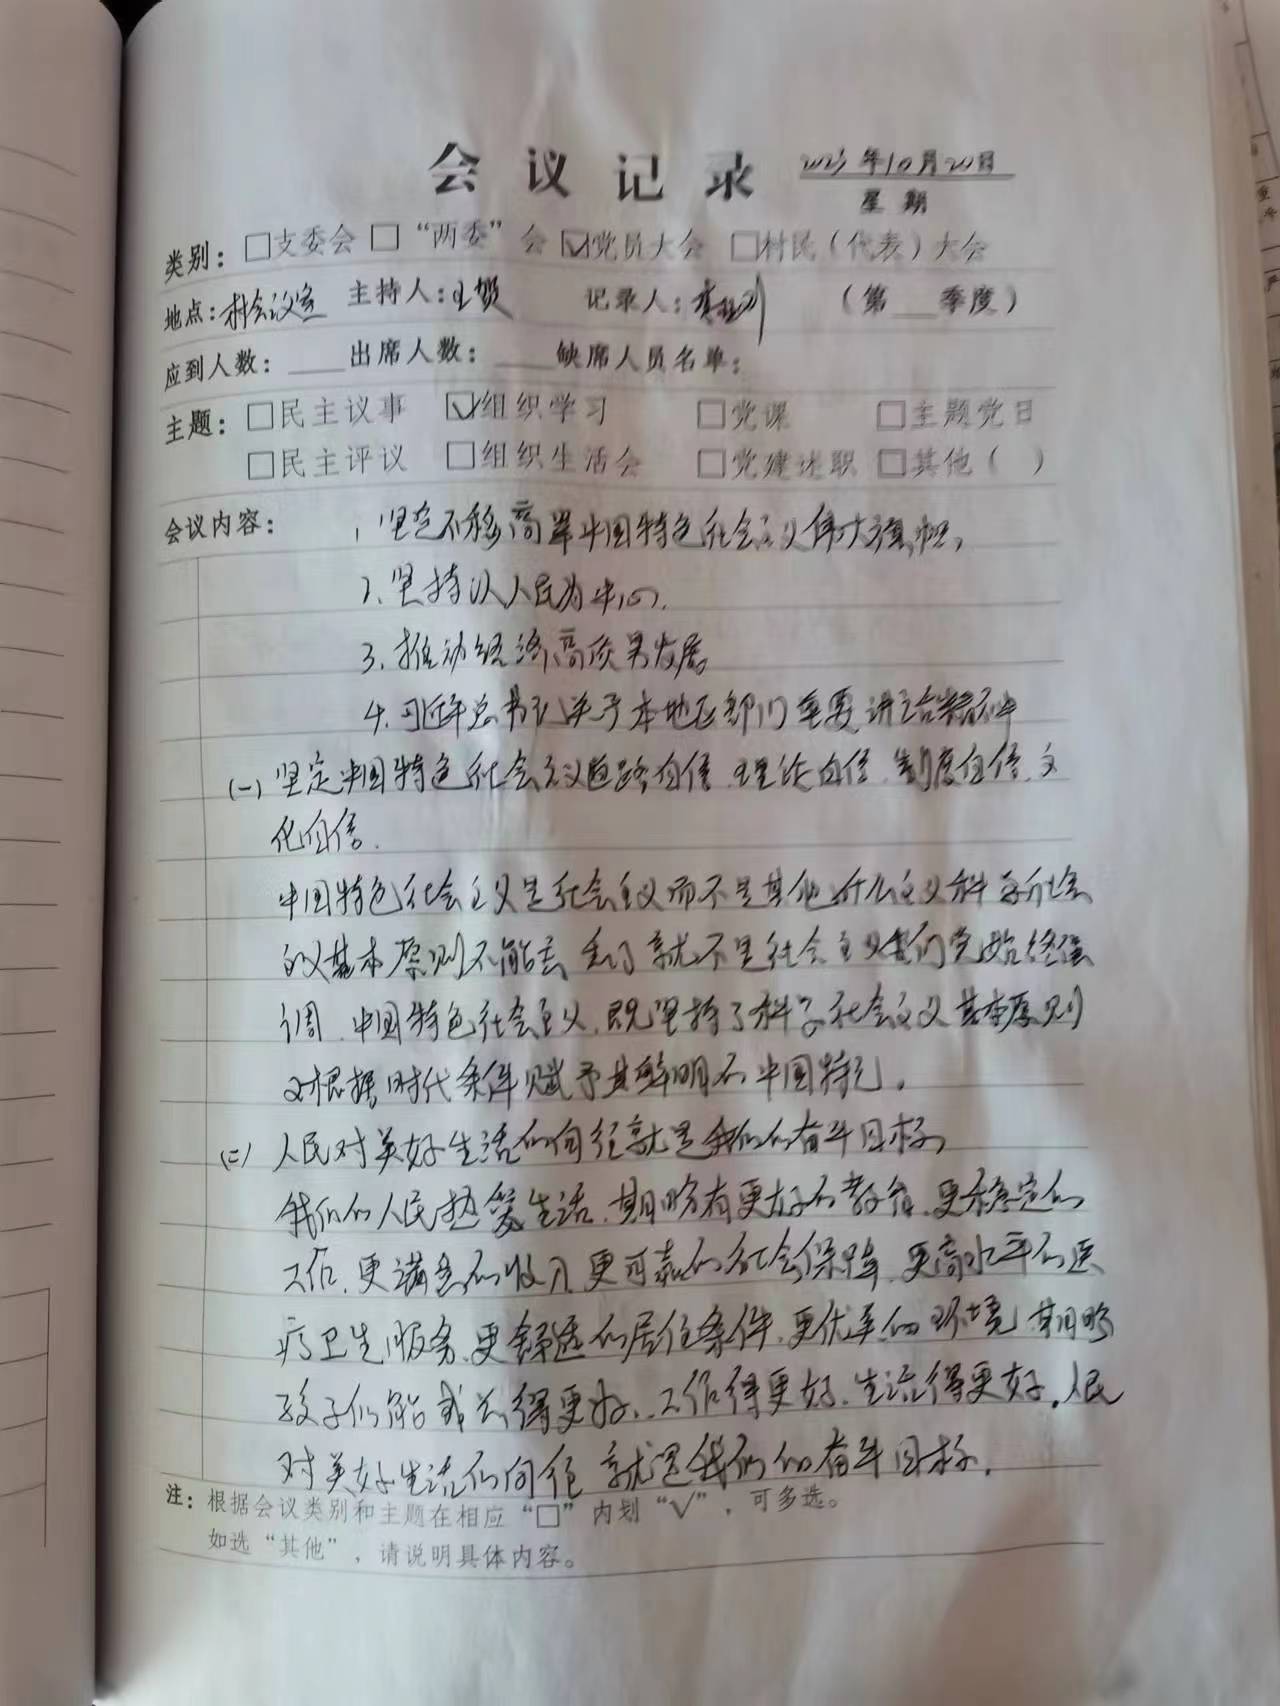 会议记录 2023年10月20日
星期
类别：□支委会 □“两委”会 ☑党员大会 □村民（代表）大会
地点：村会议室 主持人：王贺 记录人： （第 季度）
应到人数： 出席人数： 缺席人员名单：
主题：□民主议事 ☑组织学习 □党课 □主题党日
□民主评议 □组织生活会 □党建述职 □其他（ ）
会议内容： 1、坚定不移高举中国特色社会主义伟大旗帜，
2、坚持以人民为中心、
3、推动经济高质量发展
4、习近平总书记关于本地区部门重要讲话精神
(一) 坚定中国特色社会主义道路自信、理论自信、制度自信、文
化自信、
中国特色社会主义是社会主义而不是其他什么主义科学社会
的义基本原则不能丢，丢了就不是社会主义我们党始终强
调、中国特色社会主义，既坚持了科学社会主义基本原则
又根据时代条件赋予其鲜明的中国特色。
(二) 人民对美好生活的向往就是我们的奋斗目标，
我们的人民热爱生活、期盼有更好的教育、更稳定的
工作、更满意的收入、更可靠的社会保障、更高水平的医
疗卫生服务、更舒适的居住条件、更优美的环境、期盼
孩子们能成长得更好、工作得更好、生活得更好。人民
对美好生活的向往 就是我们的奋斗目标。
注：根据会议类别和主题在相应“□”内划“√”，可多选。
如选“其他”，请说明具体内容。